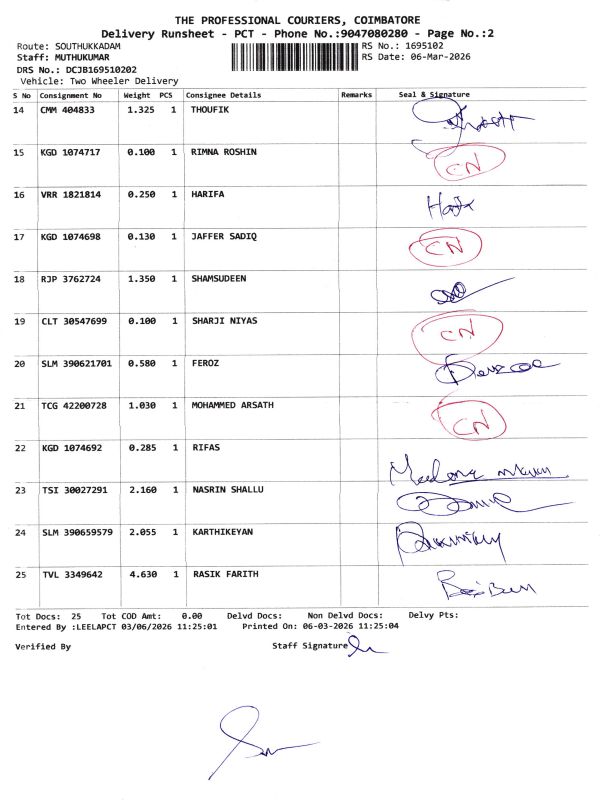 THE PROFESSIONAL COURIERS, COIMBATORE
Delivery Runsheet - PCT - Phone No.:9047080280 - Page No.:2
Route: SOUTHUKKADAM RS No.: 1695102
Staff: MUTHUKUMAR RS Date: 06-Mar-2026
DRS No.: DCJB169510202
Vehicle: Two Wheeler Delivery
S No Consignment No Weight PCS Consignee Details Remarks Seal & Signature
14 CMM 404833 1.325 1 THOUFIK
15 KGD 1074717 0.100 1 RIMNA ROSHIN CN
16 VRR 1821814 0.250 1 HARIFA
17 KGD 1074698 0.130 1 JAFFER SADIQ CN
18 RJP 3762724 1.350 1 SHAMSUDEEN
19 CLT 30547699 0.100 1 SHARJI NIYAS CN
20 SLM 390621701 0.580 1 FEROZ
21 TCG 42200728 1.030 1 MOHAMMED ARSATH CN
22 KGD 1074692 0.285 1 RIFAS
23 TSI 30027291 2.160 1 NASRIN SHALLU
24 SLM 390659579 2.055 1 KARTHIKEYAN
25 TVL 3349642 4.630 1 RASIK FARITH
Tot Docs: 25 Tot COD Amt: 0.00 Delvd Docs: Non Delvd Docs: Delvy Pts:
Entered By :LEELAPCT 03/06/2026 11:25:01 Printed On: 06-03-2026 11:25:04
Verified By Staff Signature